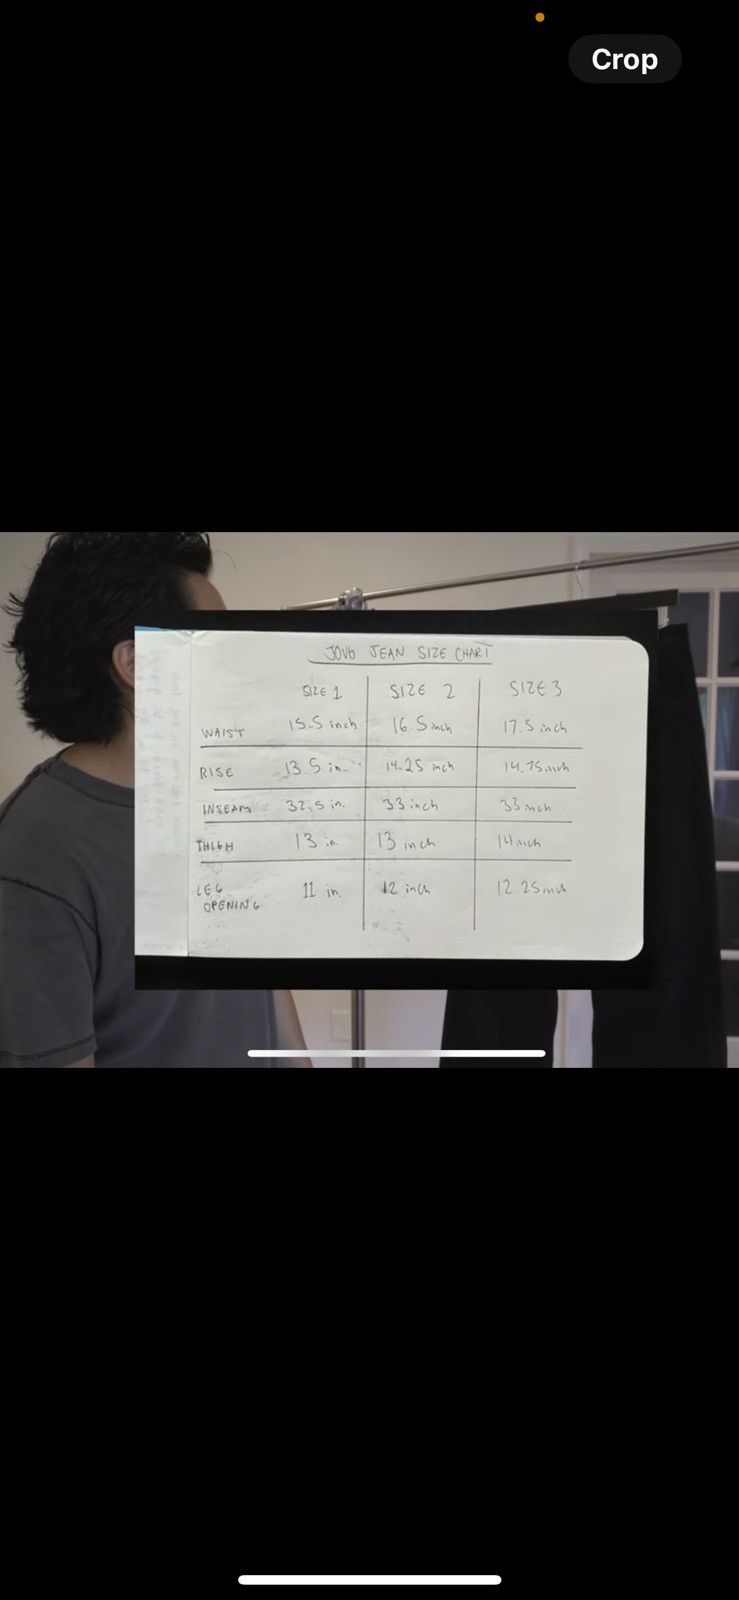 Crop
JOVO JEAN SIZE CHART
SIZE 1 SIZE 2 SIZE 3
WAIST 15.5 inch 16.5 inch 17.5 inch
RISE 13.5 in. 14.25 inch 14.75 inch
INSEAM 32.5 in. 33 inch 33 inch
THIGH 13 in. 13 inch 14 inch
LEG OPENING 11 in. 12 inch 12.25 inch